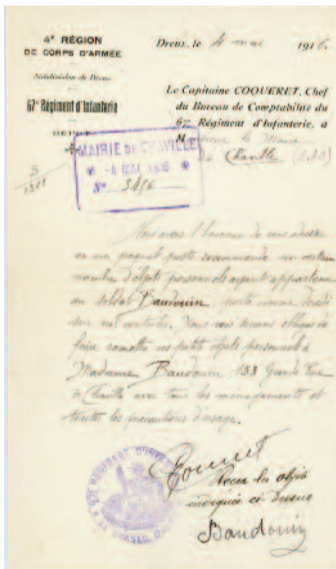 4e RÉGION
DE CORPS D'ARMÉE
Subdivision de Dreux
67e Régiment d'Infanterie
DÉPÔT
Dreux, le 4 mai 1916
Le Capitaine COQUERET, Chef
du Bureau de Comptabilité du
67e Régiment d'Infanterie, à
Monsieur le Maire
de Chaville (S&O)
MAIRIE DE CHAVILLE
4 MAI 1916
No 3456
Nous avons l'honneur de vous adresser
en un paquet poste recommandé un certain
nombre d'objets personnels ayant appartenu
au soldat Baudouin, porté comme décédé
sur nos contrôles. Nous vous serons obligés de
faire remettre ces petits objets personnels à
Madame Baudouin 153 Grande Rue
à Chaville avec tous les ménagements et
toutes les précautions d'usage.
Reçu les objets
indiqués ci dessus
Baudouin